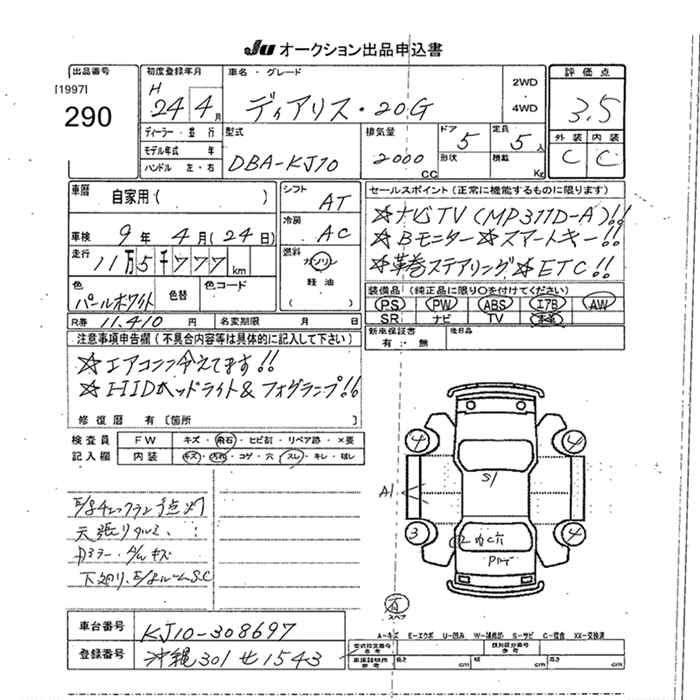 Ju オークション出品申込書
出品番号
[1997]
290
初度登録年月
H 24 4月
車名・グレード
ディアリス・20G
2WD
・
4WD
評価点
3.5
外装 内装
C C
ディーラー・並行
モデル年式 年
ハンドル 左・右
型式
DBA-KJ10
排気量
2000 CC
ドア 5
形状
定員 5人
積載 Kg
車歴 自家用( )
車検 9年 4月(24日)
走行 11万5千777km
色 パールホワイト
色替
色コード
シフト AT
冷房 AC
燃料 ガソリン
軽油
R券 11.410円
名変期限 月 日
セールスポイント(正常に機能するものに限ります)
☆ナビTV(MP311D-A)!!
☆Bモニター☆スマートキー!!
☆革巻ステアリング☆ETC!!
装備品(純正品に限り○を付けてください)
PS PW ABS エアB AW
SR ナビ TV 本革
新車保証書 有:無
後日品
注意事項申告欄(不具合内容等は具体的に記入して下さい)
☆エアコン冷えてます!!
☆HIDヘッドライト&フォグランプ!!
修復歴 有〔箇所 〕
検査員 FW キズ・飛石・ヒビ割・リペア跡・×要
記入欄 内装 キズ・汚れ・コゲ・穴・スレ・キレ・破レ
E/gチェックランプ点灯
天張りタルミ
Dミラー・ダッシュキズ
下廻り、E/gルームS.C
4 4
S1
A1
3 4
有
スペア
A-キズ E-エクボ U-凹み W-補修跡 S-サビ C-腐食 XX-交換済
車台番号 KJ10-308697
登録番号 沖縄301せ1543
型式指定番号 類別区分番号
長さ cm 幅 cm 高さ cm